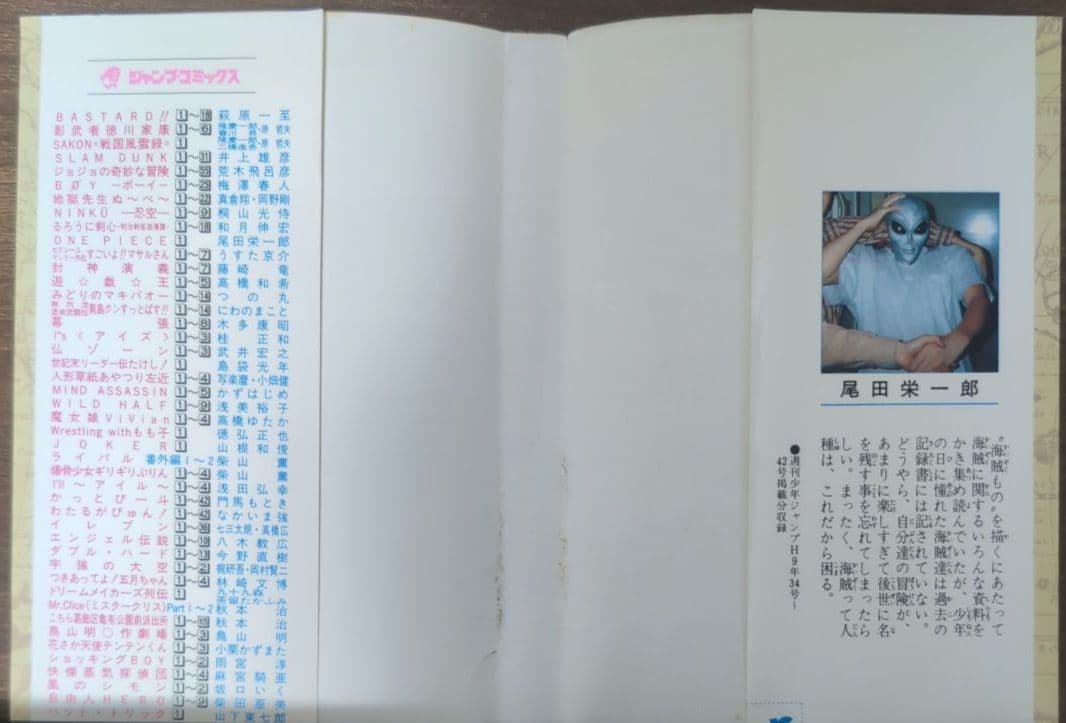 ジャンプ・コミックス
BASTARD!! 1～18 萩原一至
影武者徳川家康 1～6 隆慶一郎・原哲夫
SAKON＝戦国風雲録＝ 1 隆慶一郎・原哲夫
SLAM DUNK 1～31 井上雄彦
ジョジョの奇妙な冒険 荒木飛呂彦
BØY－ボーイ－ 梅澤春人
地獄先生ぬ～べ～ 1～22 真倉翔・岡野剛
NINKŪ―忍空― 1～9 桐山光侍
るろうに剣心－明治剣客浪漫譚－ 1～18 和月伸宏
ONE PIECE 1 尾田栄一郎
すごいよ!!マサルさん 1～7 うすた京介
封神演義 1～7 藤崎竜
遊☆戯☆王 1～5 高橋和希
みどりのマキバオー 1～14 つの丸
真島クンすっとばす!! 1～14 にわのまこと
幕張 木多康昭
I"s〈アイズ〉 1～3 桂正和
仏ゾーン 1～3 武井宏之
世紀末リーダー伝たけし! 1 島袋光年
人形草紙あやつり左近 1～4 写楽麿・小畑健
MIND ASSASSIN 1～5 かずはじめ
WILD HALF 1～9 浅美裕子
魔女娘ViVian 1～4 高橋ゆたか
Wrestling withもも子 1 徳弘正也
JOKER 1 山根和俊
ライバル 番外編1～2 柴山薫
爆骨少女ギリギリぷりん 1～4 柴山薫
I'll～アイル～ 1～4 浅田弘幸
かっとび一斗 門馬もとき
わたるがぴゅん! なかいま強
イレブン 七三太朗・高橋広
エンジェル伝説 1～10 八木教広
ダブル・ハード 1～13 今野直樹
宇強の大空 1～2 梶研吾・岡村賢二
つきあってよ!五月ちゃん 1～4 林崎文博
ドリームメイカーズ列伝 1
Mr.Clice(ミスタークリス) Part1～2 秋本治
こちら葛飾区亀有公園前派出所 秋本治
鳥山明○作劇場 1～3 鳥山明
花さか天使テンテンくん 1～3 小栗かずまた
ショッキングBOY 1～2 雨宮淳
快傑蒸気探偵団 1～4 麻宮騎亜
風のシモン 1～2 坂口いく
自由人HERO 1～9 柴田亜美
ハット・トリック 1 山下東七郎
尾田栄一郎
“海賊もの”を描くにあたって
海賊に関するいろんな資料を
かき集め読んでいたが、少年
の日に憧れた海賊達は過去の
記録書には記されていない。
どうやら、自分達の冒険が、
あまりに楽しすぎて後世に名
を残す事を忘れてしまったら
しい。まったく、海賊って人
種は、これだから困る。
●週刊少年ジャンプH9年34号～
42号掲載分収録